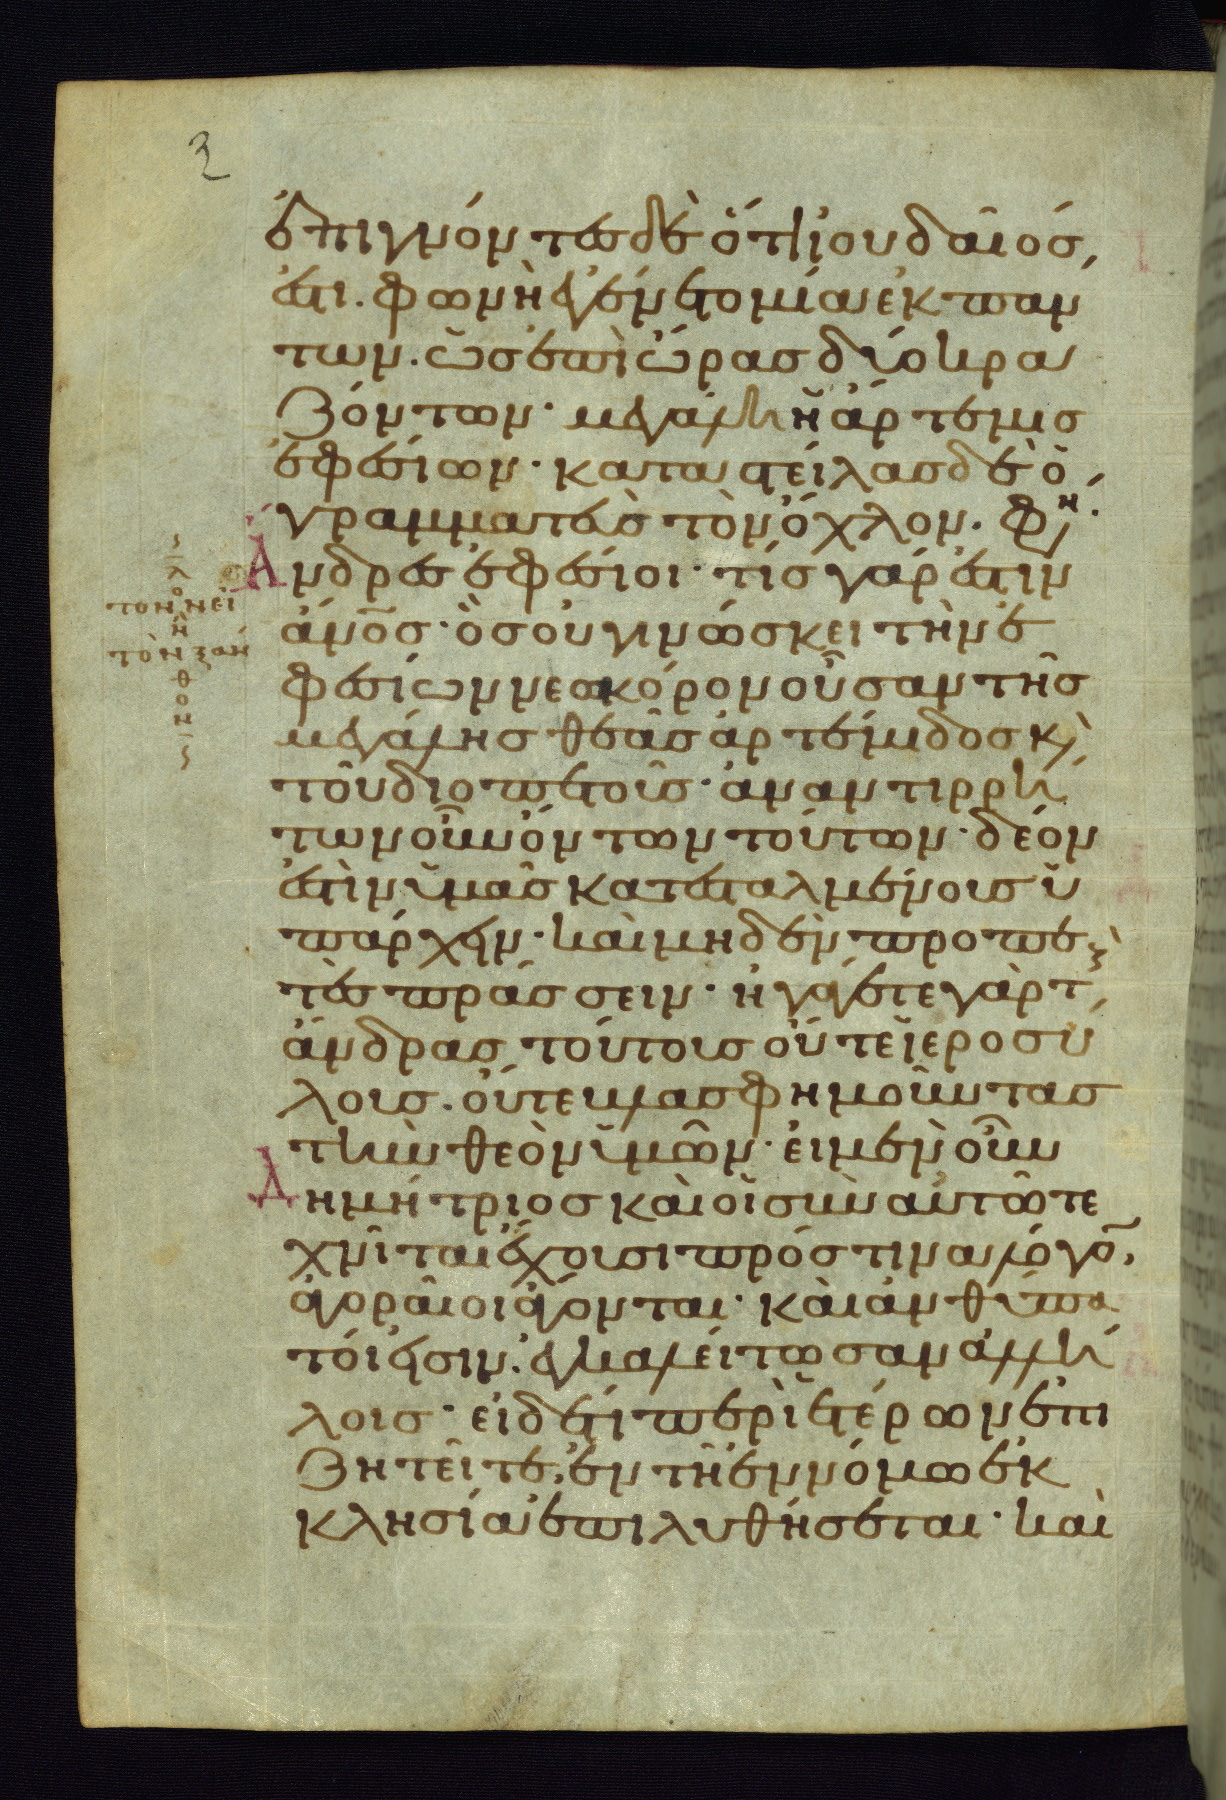 ἐπιγνόντες δὲ ὅτι ἰουδαῖός
ἐστι. φωνὴ ἐγένετο μία ἐκ παν
των. ὡς ἐπὶ ὥρας δύο κρα
ζόντων· μεγάλη ἡ ἄρτεμις
ἐφεσίων· καταστείλας δὲ ὁ
γραμματεὺς τὸν ὄχλον. φη
Ἄνδρες ἐφέσιοι· τίς γάρ ἐστιν
ἄνος· ὃς οὐ γινώσκει τὴν ἐ
φεσίων νεωκόρον οὖσαν τῆς
μεγάλης θεᾶς ἀρτέμιδος κ
τοῦ διοπετοῦς· ἀναντιρρή
των οὖν ὄντων τούτων· δέον
ἐστὶν ὑμᾶς κατεσταλμένους ὑ
πάρχειν· καὶ μηδὲν προπε
τὲς πράσσειν· ἠγάγετε γὰρ τ
ἄνδρας τούτους οὔτε ἱεροσύ
λους. οὔτε βλασφημοῦντας
τὴν θεὸν ὑμῶν· εἰ μὲν οὖν
Δημήτριος καὶ οἱ σὺν αὐτῶ τε
χνῖται ἔχουσι πρός τινα λόγον,
ἀγοραῖοι ἄγονται· καὶ ἀνθύπα
τοί εἰσιν. ἐγκαλείτωσαν ἀλλή
λοις· εἰ δέ τι περὶ ἑτέρων ἐπι
ζητεῖτε, ἐν τῆ ἐννόμω ἐκ
κλησία ἐπιλυθήσεται· καὶ